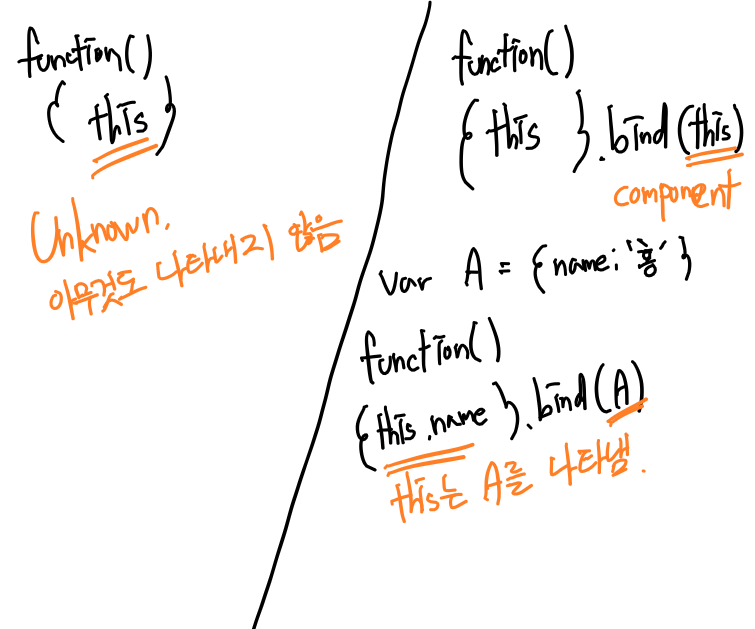 function()
{ this }
Unknown.
아무것도 나타내지 않음
function()
{ this }.bind(this)
component
var A = {name: '홍'}
function()
{this.name}.bind(A)
this는 A를 나타냄.